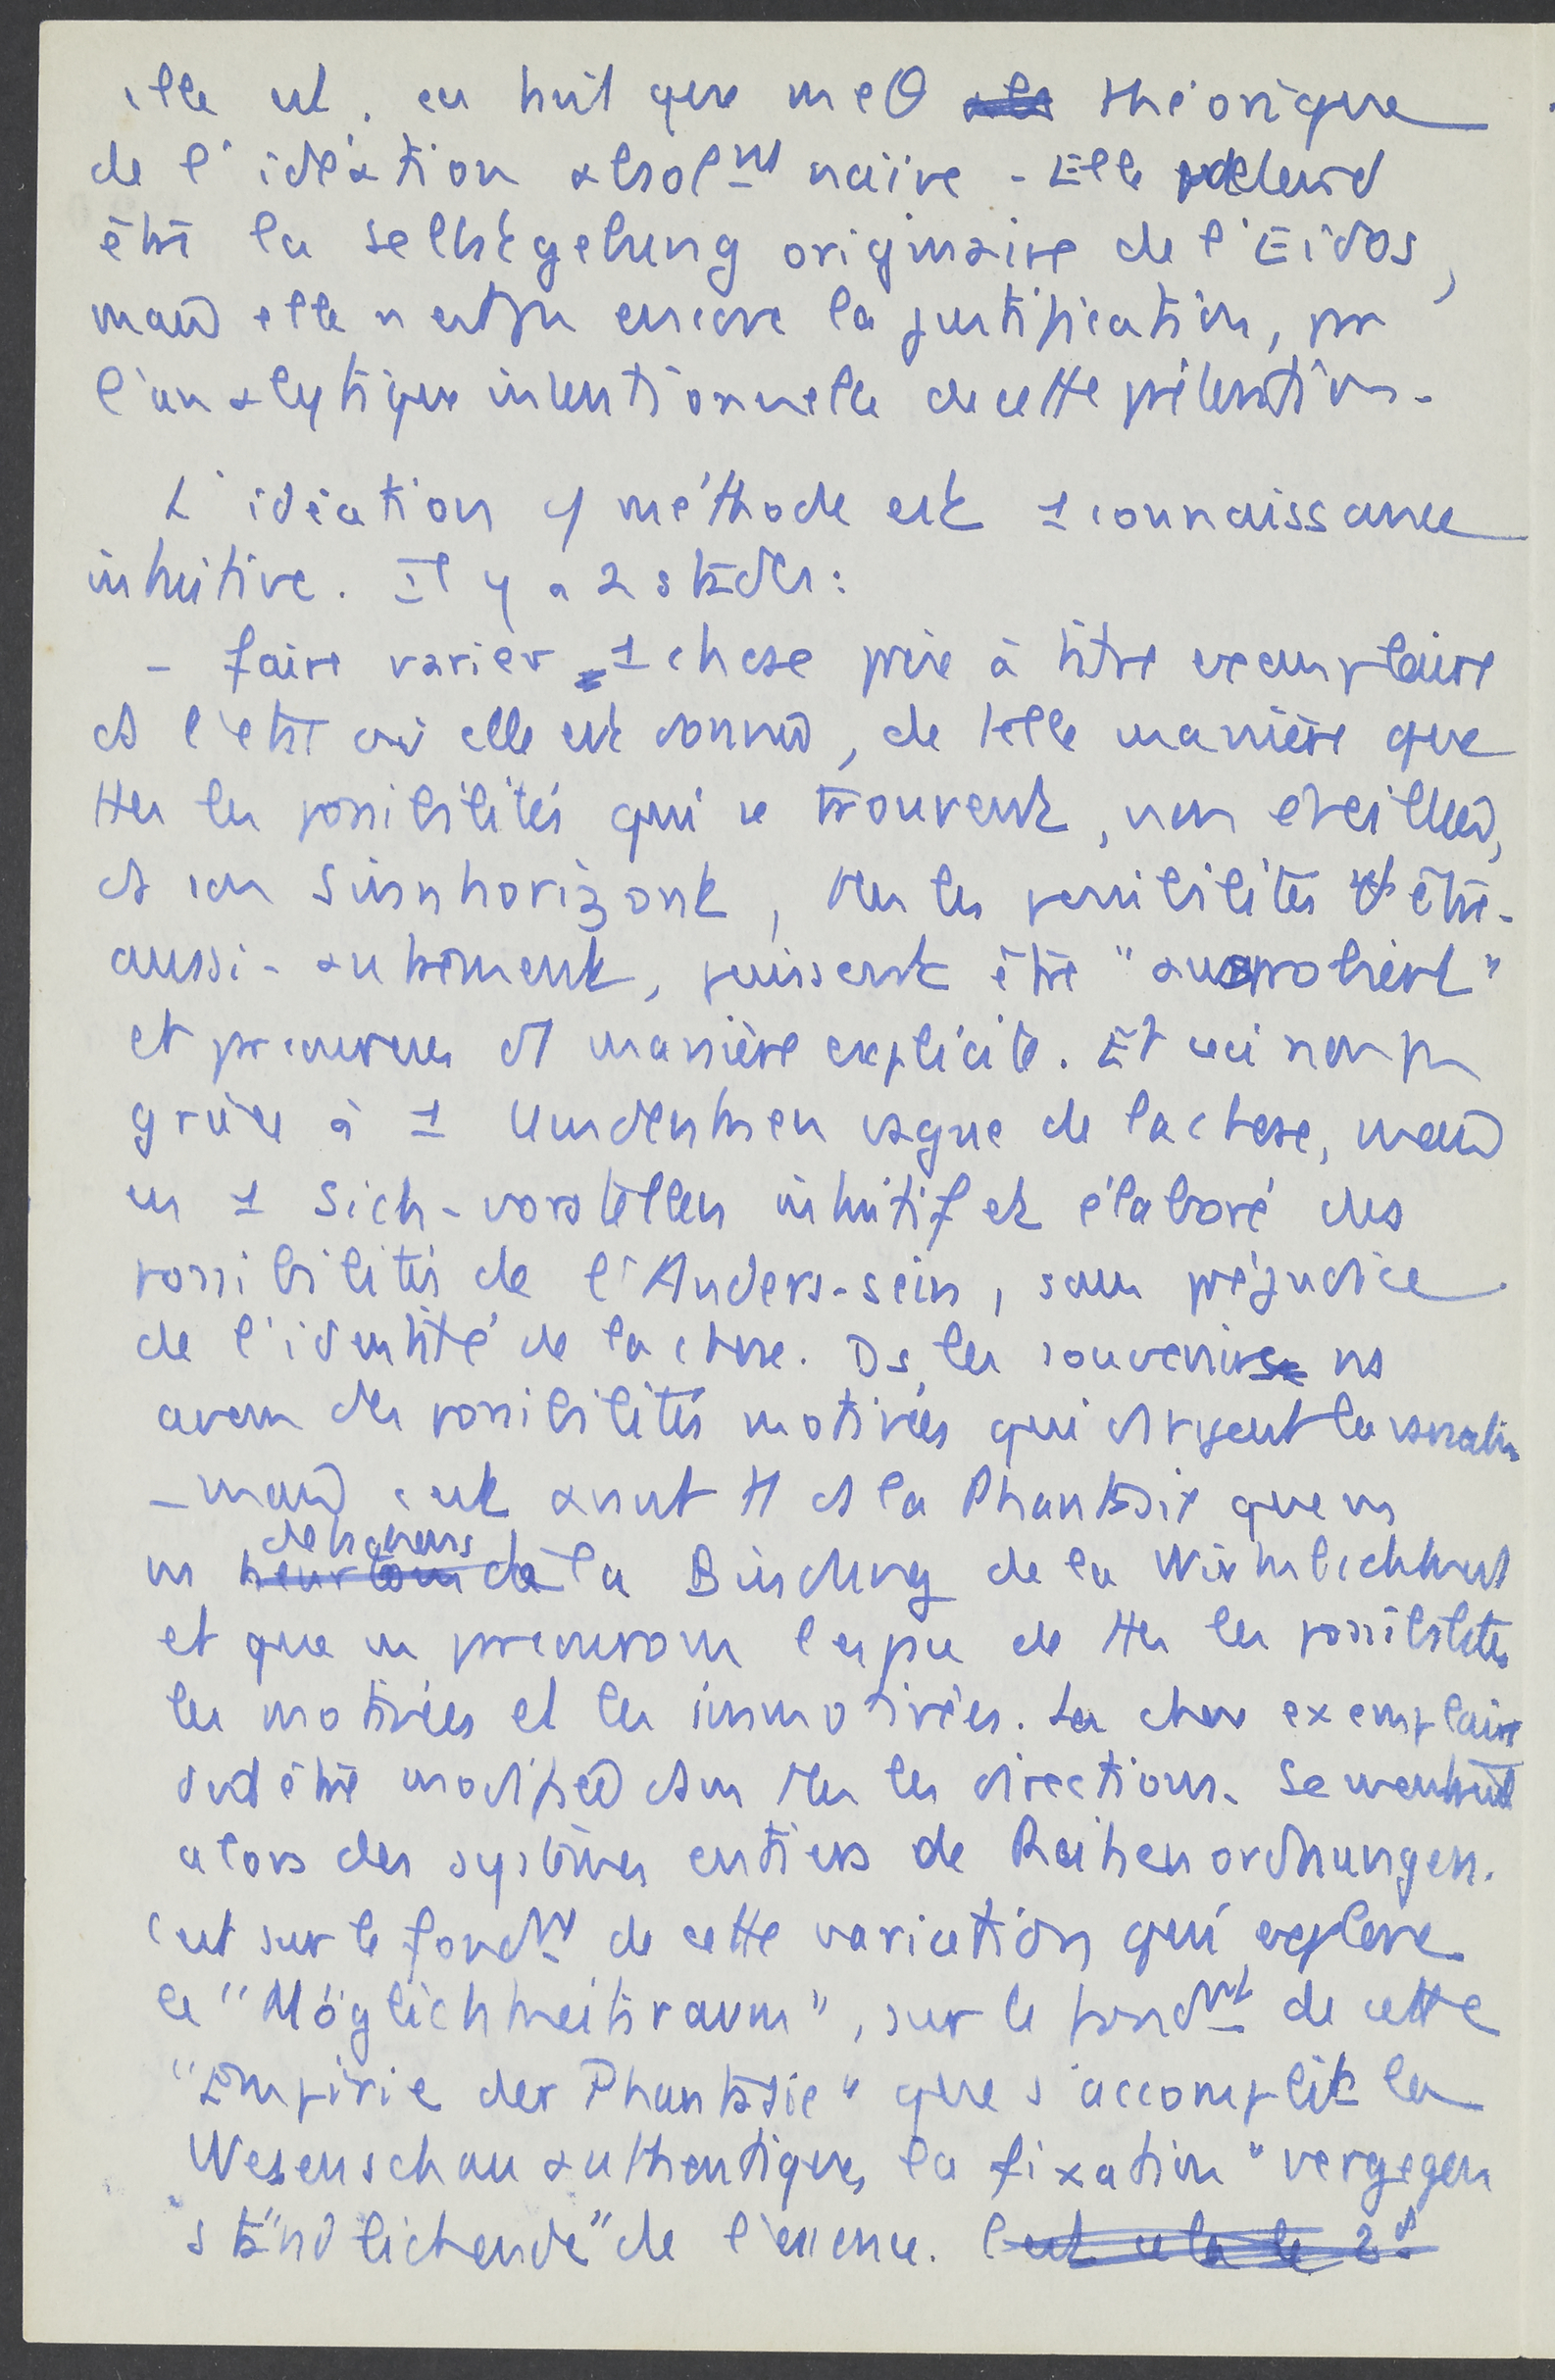 elle est, en tant que méθ théorique
de l'idéation absolnt naïve - Elle prétend
être la Selbstgebung originaire de l'Eidos,
mais elle n'est pas encore la justification, pr
l'analytique intentionnelle de cette prétention.
L'idéation cf méthode est 1 connaissance
intuitive. Il y a 2 stades :
- faire varier 1 chose prise à titre exemplaire
ds l'être où elle est donnée, de telle manière que
ttes les possibilités qui se trouvent, non éveillées,
ds son Sinnhorizont, ttes les possibilités d'être-
aussi-autrement, puissent être "ausprobiert"
et parcourues de manière explicite. Et ceci non pas
grâce à 1 Umdenken vague de la chose, mais
en 1 Sich-vorstellen intuitif et élaboré des
possibilités de l'Anders-sein, sans préjudice
de l'identité de la chose. Ds les souvenirs ns
avons des possibilités motivées qui dirigent la variation
- mais c'est avant tt ds la Phantasie que ns
ns dehors de la Bindung de la Wirklichkeit
et que ns parcourons l'espace de ttes les possibilités
les motivées et les immotivées. La chose exemplaire
doit être modifiée dans ttes les directions. Se montrent
alors des systèmes entiers de Reihenordnungen.
C'est sur le fondnt de cette variation qui explore
le "Möglichkeitsraum", sur le fondnt de cette
"Empirie der Phantasie" que s'accomplit la
Wesenschau authentique, la fixation "vergegen
ständlichende" de l'essence. C'est cela le 2d